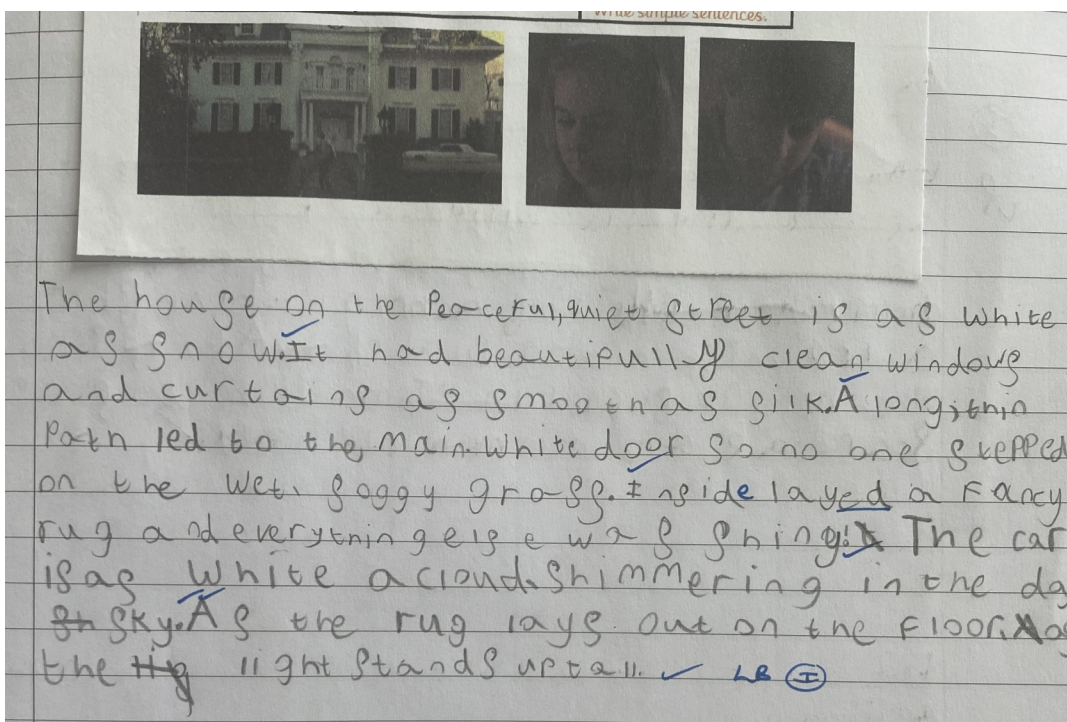 Write simple sentences.
The house on the Peaceful, quiet street is as white
as snow. It had beautifully clean windows
and curtains as smooth as silk. A long, thin
Path led to the main white door so no one stepped
on the wet, soggy grass. Inside layed a fancy
rug and everything else was shiny. The car
is as white a cloud. Shimmering in the
sky. As the rug lays out on the floor.
the light stands up tall. LB I